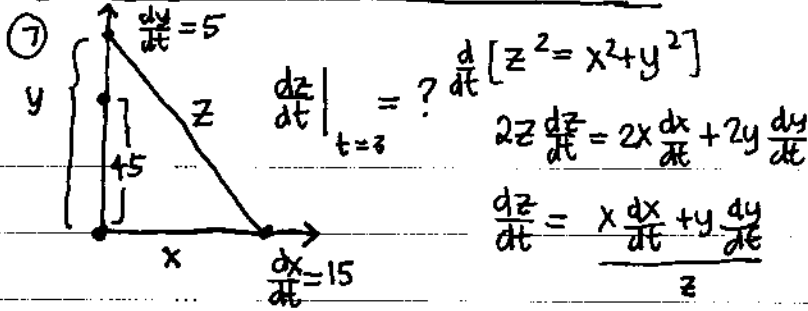 ⑦ dy/dt = 5
y
45
z
x
dx/dt = 15
dz/dt |t=3 = ?
d/dt [z² = x² + y²]
2z dz/dt = 2x dx/dt + 2y dy/dt
dz/dt = (x dx/dt + y dy/dt)/z